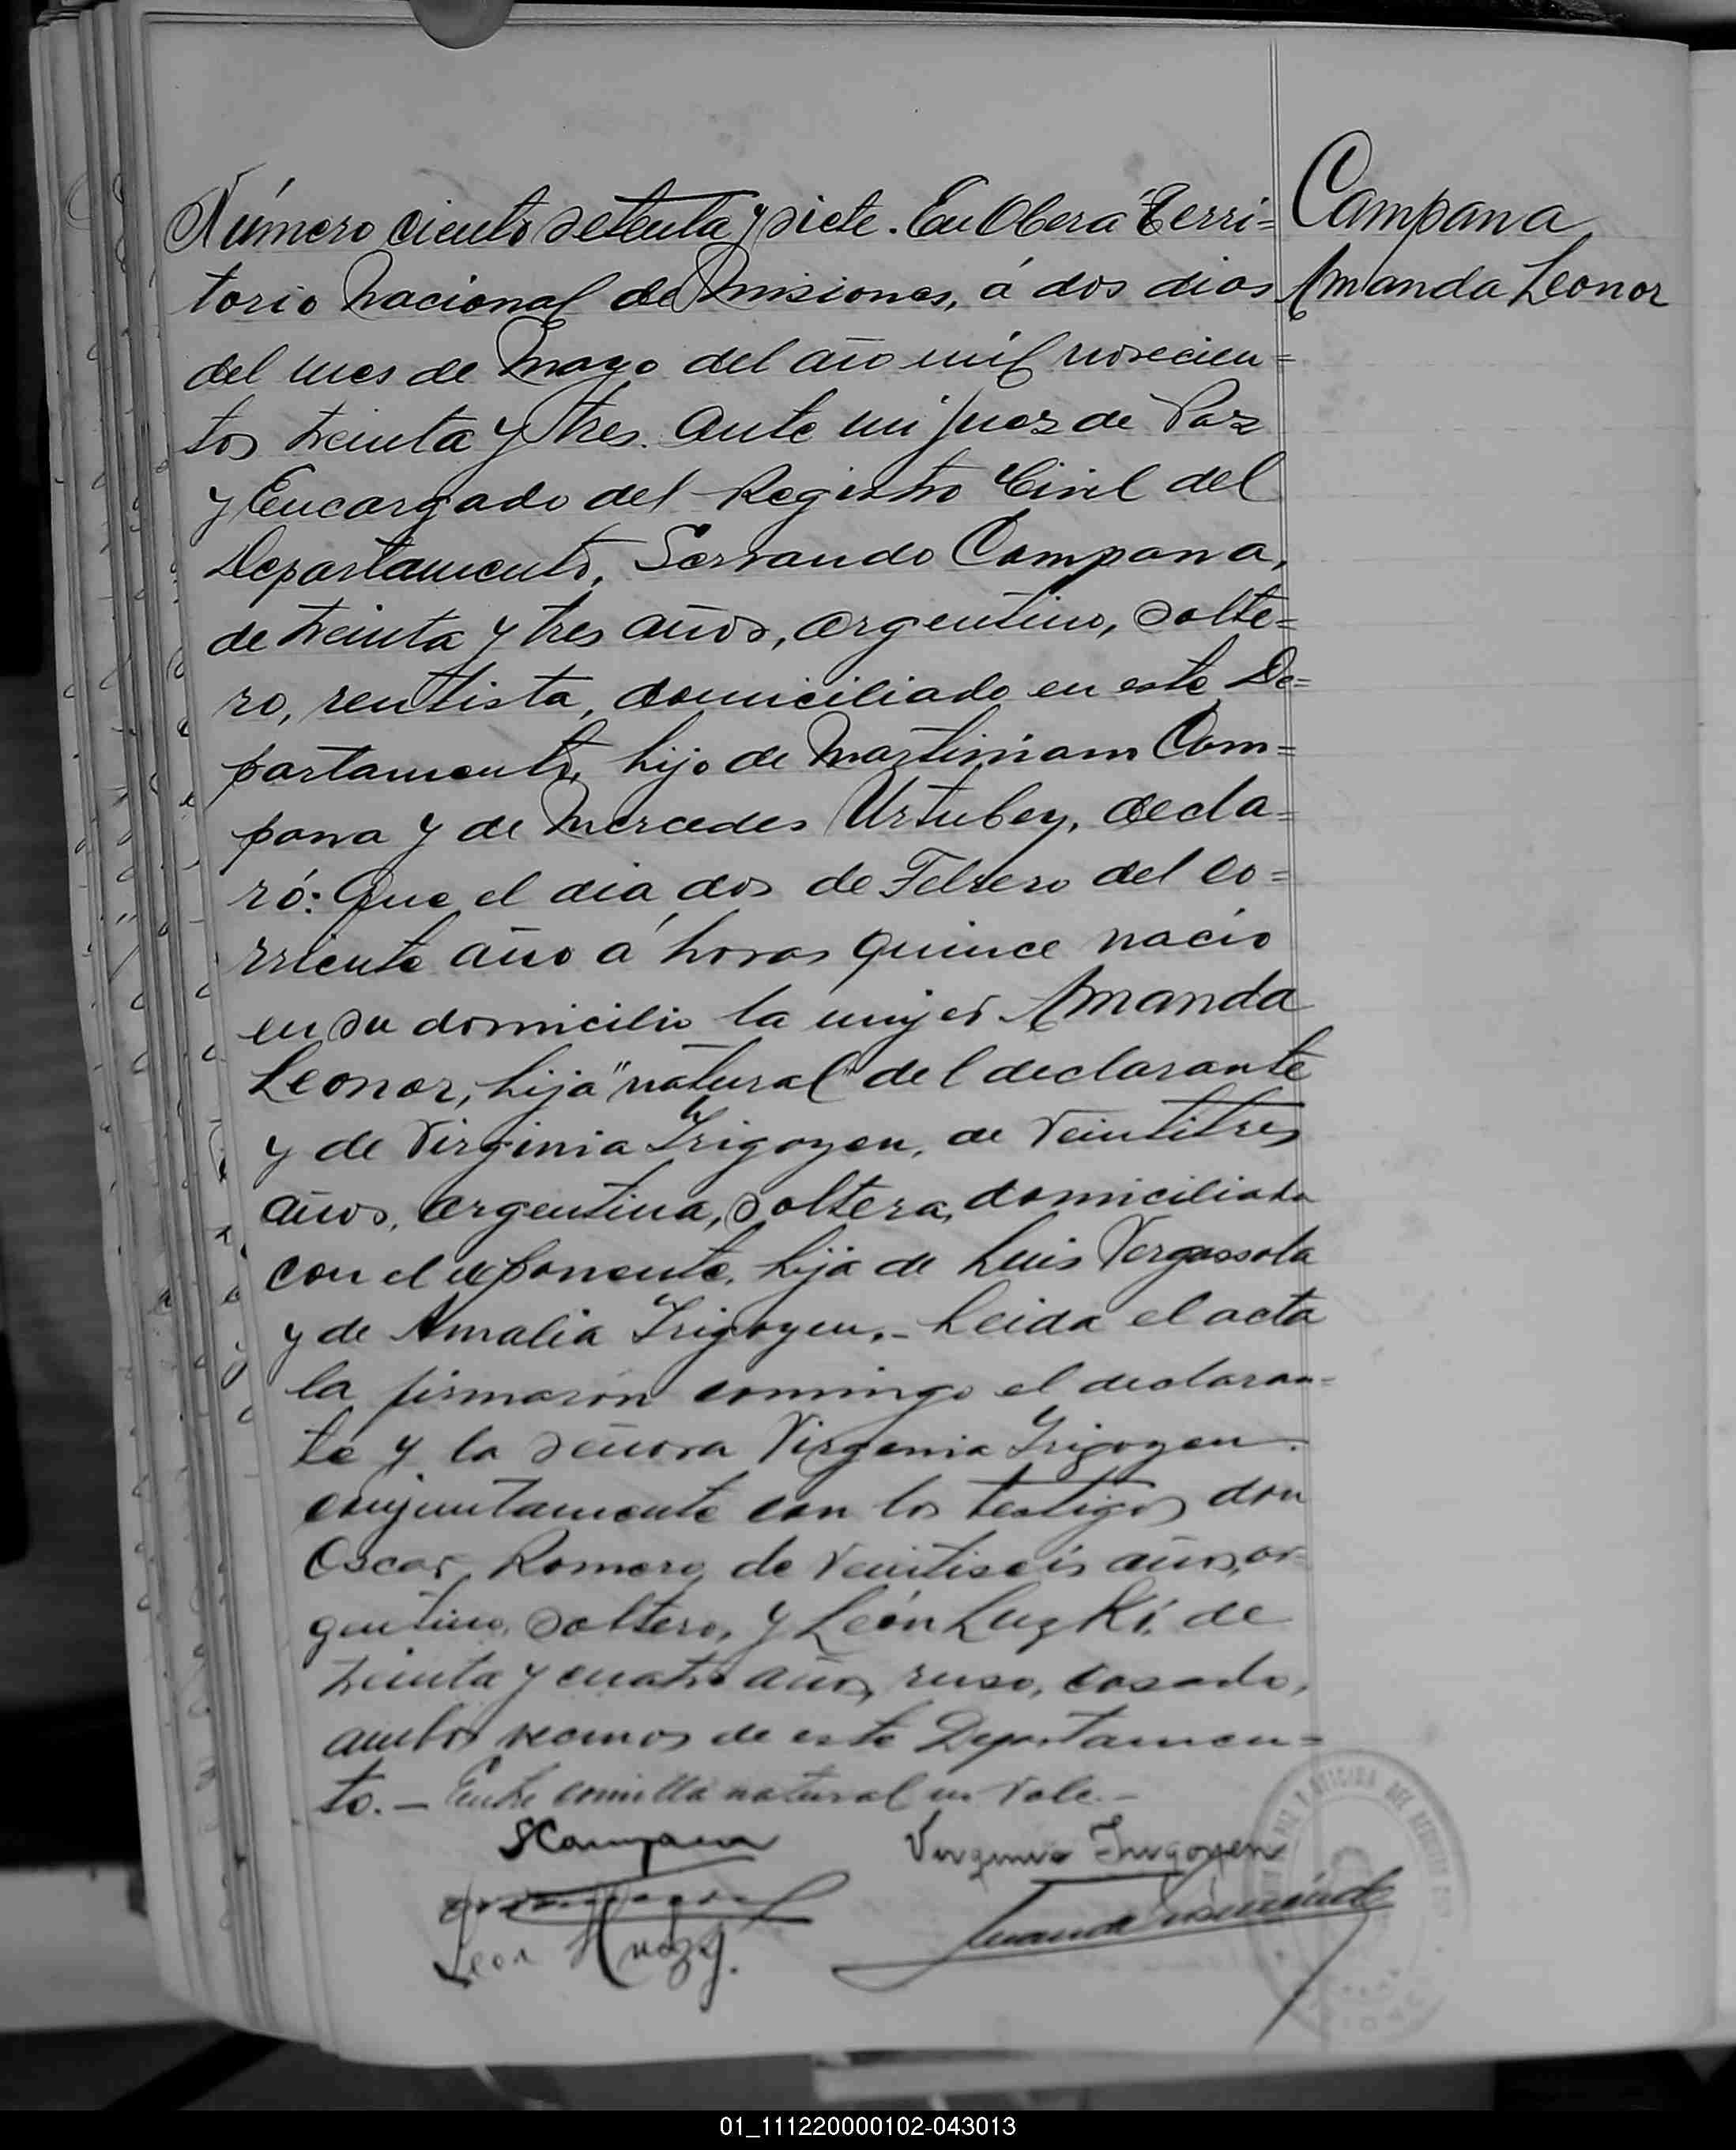 Número ciento setenta y siete. En Oberá Terri=
torio Nacional de Misiones, á dos dias
del mes de Mayo del año mil novecien=
tos treinta y tres. Ante mi Juez de Paz
y Encargado del Registro Civil del
Departamento, Servando Campana,
de treinta y tres años, argentino, solte=
ro, rentista, domiciliado en este De=
partamento, hijo de Martiniano Cam=
pana y de Mercedes Urtubey, decla=
ró: Que el dia dos de Febrero del co=
rriente año á horas quince nacio
en su domicilio la mujer Amanda
Leonor, hija "natural" del declarante
y de Virginia Irigoyen, de veintitres
años, argentina, soltera, domiciliada
con el exponente, hija de Luis Vergassola
y de Amalia Irigoyen.- Leida el acta
la firmaron conmigo el declaran=
te y la señora Virginia Irigoyen.
conjuntamente con los testigos don
Oscar Romero, de veintiseis años, ar-
gentino, soltero, y León Luzki, de
treinta y cuatro años, ruso, casado,
ambos vecinos de este Departamen=
to. — Entre comilla natural no vale.-
Campana
Amanda Leonor
SCampana
Virginia Irigoyen
Leon
01_111220000102-043013